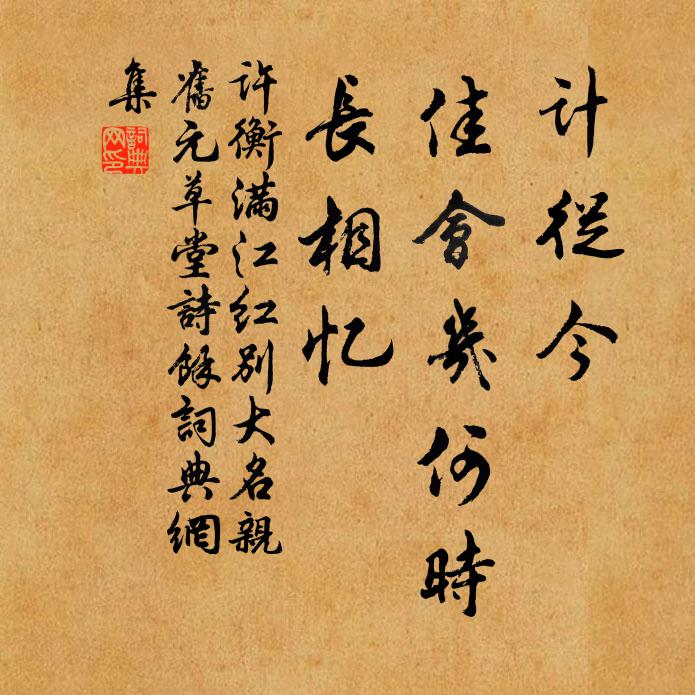 计從今
佳會幾何時
長相忆
許衡滿江紅别大名親
舊元草堂詩餘詞典網
集
詞典
网印